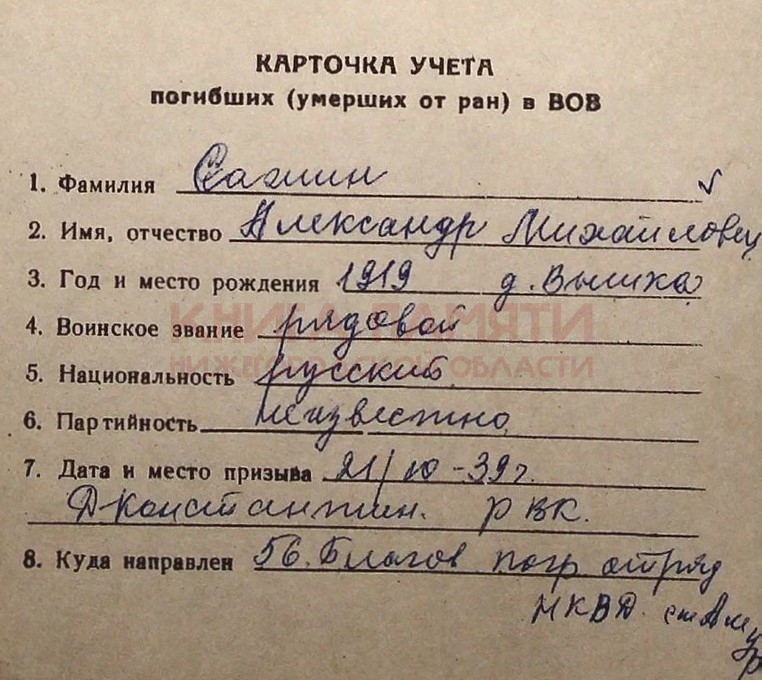 КАРТОЧКА УЧЕТА
погибших (умерших от ран) в ВОВ
1. Фамилия Сагин
2. Имя, отчество Александр Михайлович
3. Год и место рождения 1919 д. Выписка
КНИГА ПАМЯТИ
4. Воинское звание рядовой
НИЖЕГОРОДСКОЙ ОБЛАСТИ
5. Национальность русский
6. Партийность неизвестно
7. Дата и место призыва 21/10-39г.
Д-Константин. РВК.
8. Куда направлен 56. Благов погр отряд
НКВД. ст Амур